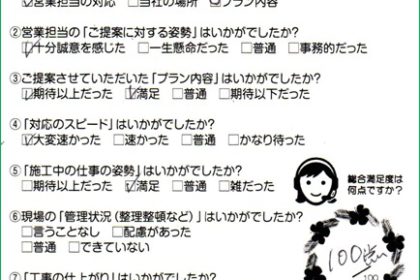 ☑営業担当の対応 □当社の場所 ☑プラン内容
②営業担当の「ご提案に対する姿勢」はいかがでしたか?
☑十分誠意を感じた □一生懸命だった □普通 □事務的だった
③ご提案させていただいた「プラン内容」はいかがでしたか?
☑期待以上だった ☑満足 □普通 □期待以下だった
④「対応のスピード」はいかがでしたか?
☑大変速かった □速かった □普通 □かなり待った
⑤「施工中の仕事の姿勢」はいかがでしたか?
□期待以上だった ☑満足 □普通 □雑だった
総合満足度は
何点ですか?
⑥現場の「管理状況(整理整頓など)」はいかがでしたか?
□言うことなし □配慮があった
□普通 □できていない
100点
100
⑦「工事の仕上がり」はいかがでしたか?